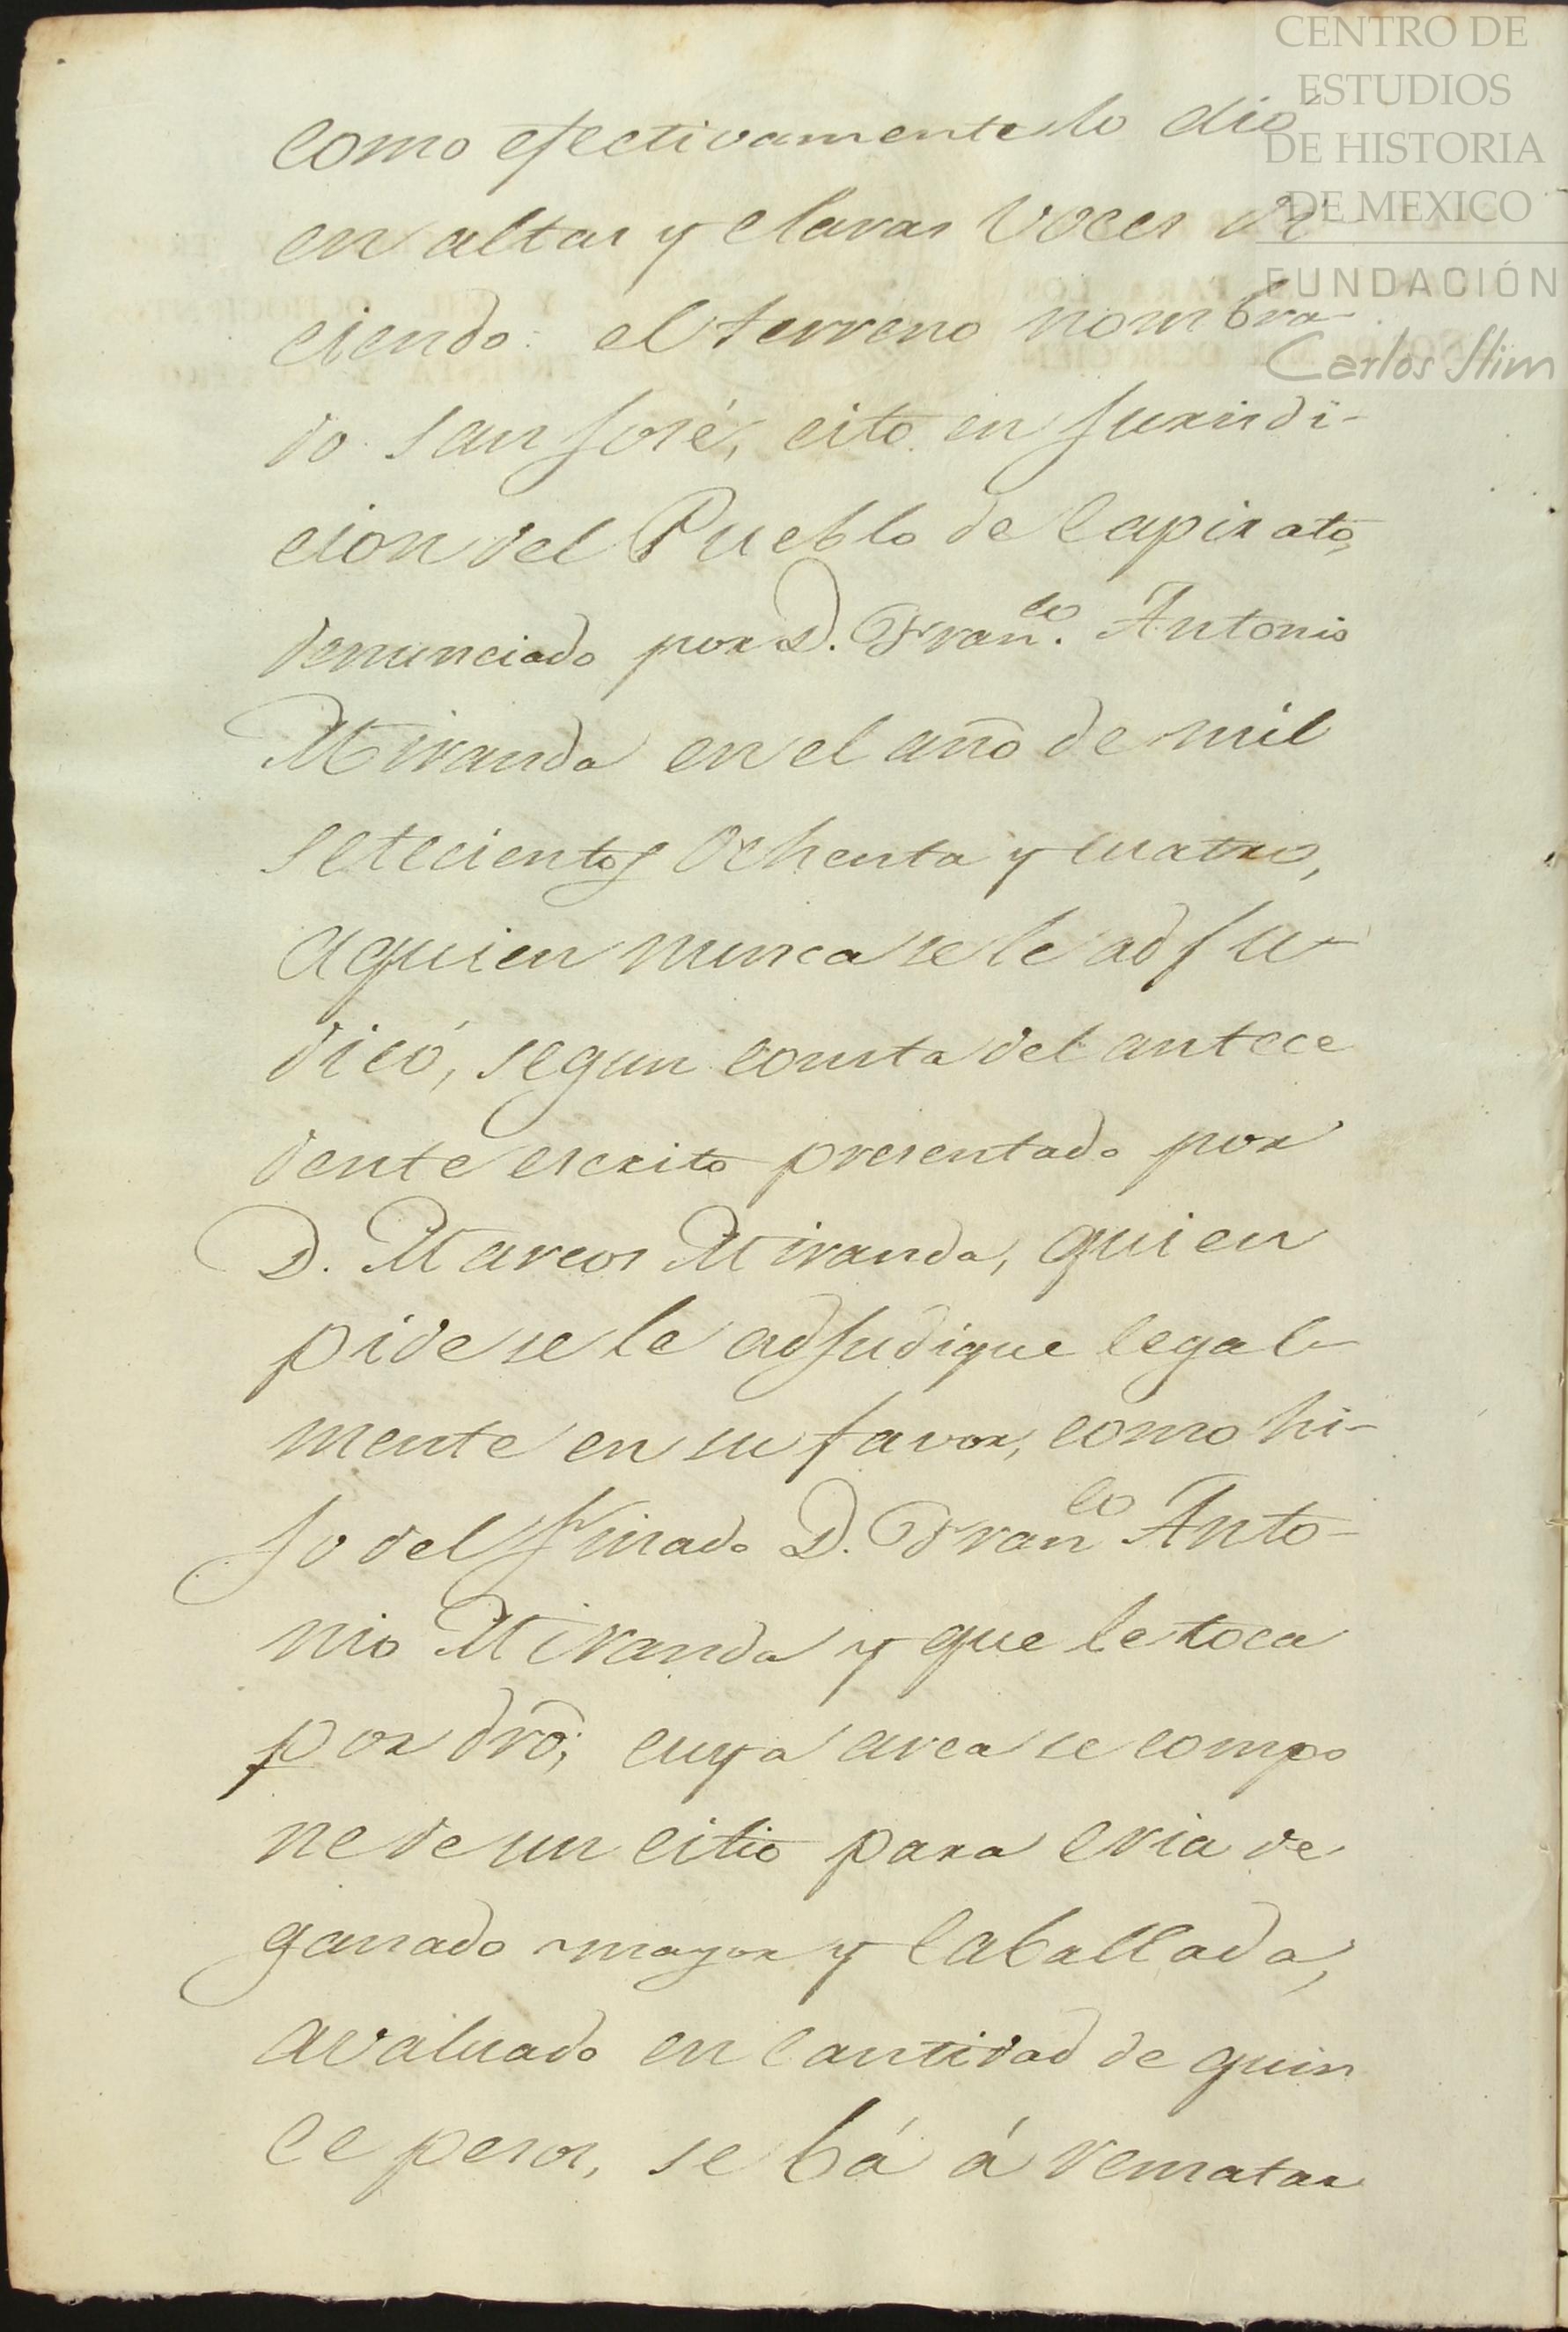 CENTRO DE
ESTUDIOS
DE HISTORIA
DE MEXICO
FUNDACIÓN
Carlos Slim
como efectivamente lo dió
en altas y claras voces di
ciendo: el terreno nombra
do San José, cito en Jurisdi-
cion del Pueblo de Capirato,
denunciado por D. Fran.co Antonio
Miranda en el año de mil
setecientos ochenta y cuatro,
aquien nunca se le adju-
dicó, segun consta del antece
dente escrito presentado por
D. Marcos Miranda, quien
pide se le adjudique legal-
mente en su favor, como hi-
jo del Finado D. Franco Anto-
nio Miranda y que le toca
por dro; cuya area se compo
ne de un citio para cria de
ganado mayor y Caballada,
avaluado en cantidad de quin
ce pesos, se bá á rematar